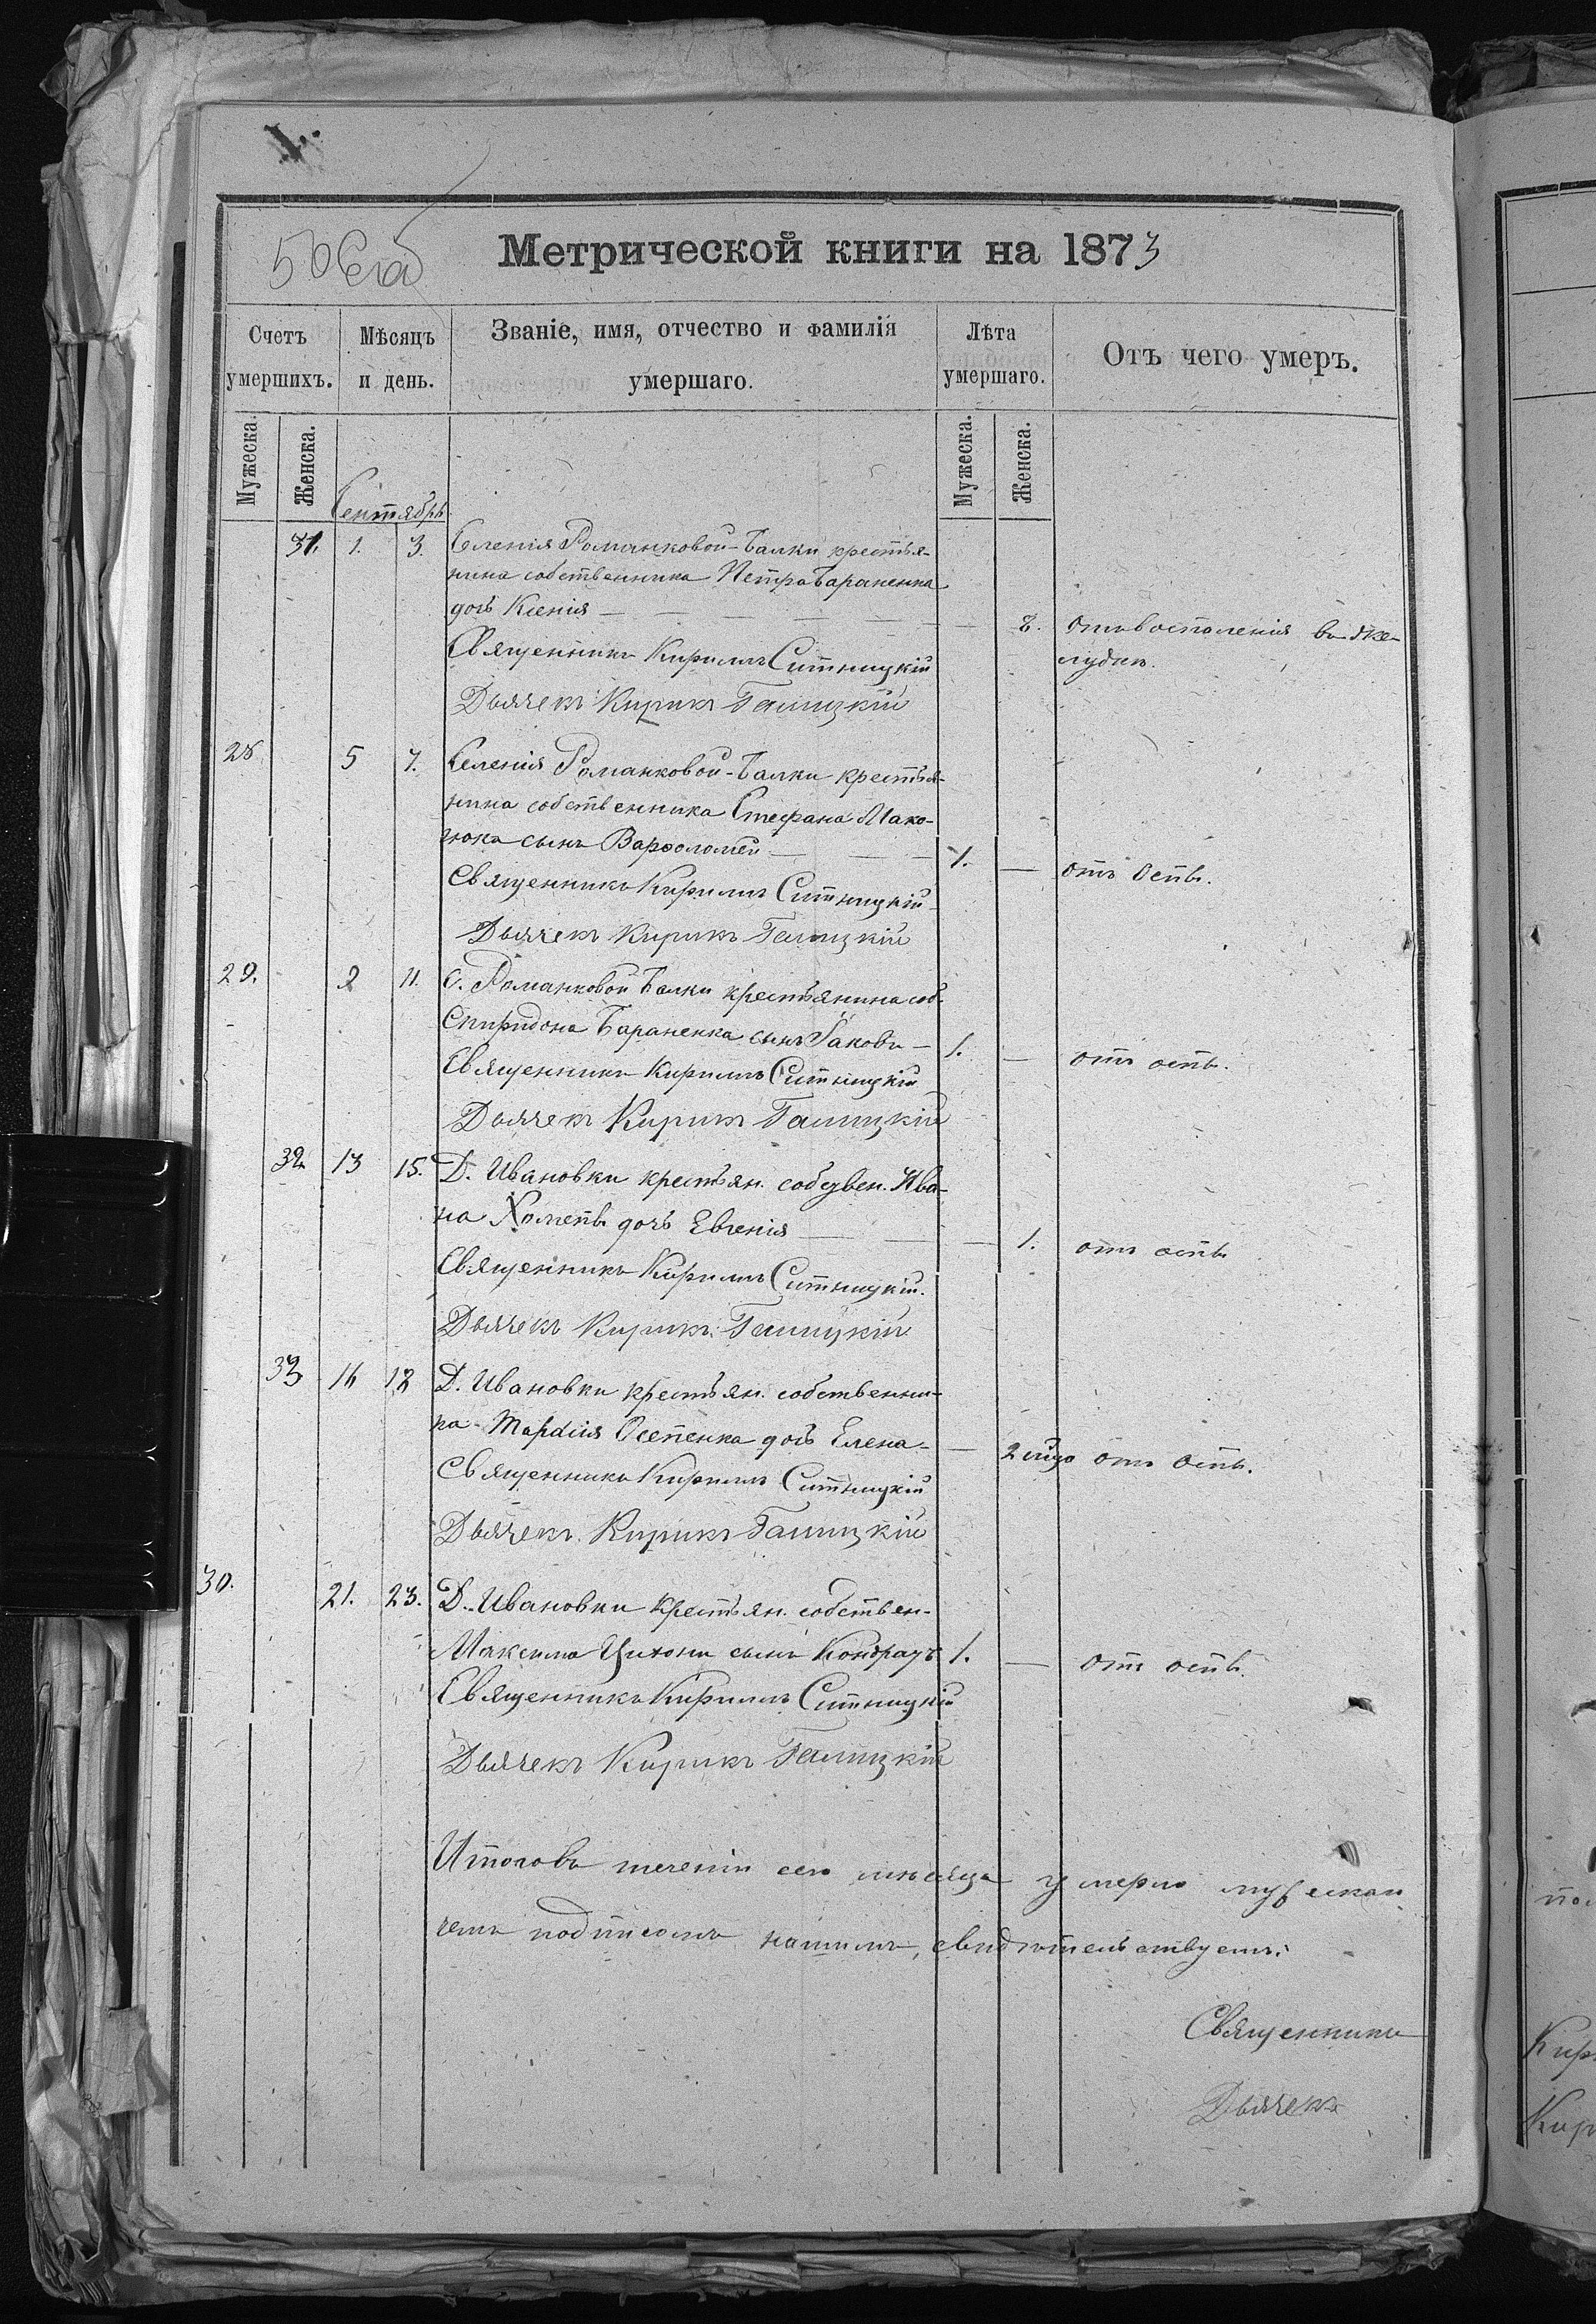 Метрической книги на 1873
Счетъ умершихъ. Мѣсяцъ и день. Званіе, имя, отчество и фамилія умершаго. Лѣта умершаго. Отъ чего умеръ.
Мужеска. Женска. Мужеска. Женска.
Сентябрь
31. 1. 3. Селенія Романковой-Балки крестья-
нина собственника Петра Бараненка
дочь Ксенія — 8. отъ воспаленія въ же-
лудкѣ.
Священникъ Кириллъ Ситницкій
Дьячекъ Кирикъ Галицкій
28 5 7. Селенія Романковой-Балки крестья-
нина собственника Стефана Мако-
сынъ Варѳоломей — 1. — отъ Оспы.
Священникъ Кириллъ Ситницкій
Дьячекъ Кирикъ Галицкій
29. 9 11. С. Романковой Балки крестьянина соб.
Спиридона Бараненка сынъ Іаковъ — 1. — отъ оспы.
Священникъ Кириллъ Ситницкій
Дьячекъ Кирикъ Галицкій
32 13 15. Д. Ивановки крестьян. собствен. Ива-
на дочь Евгенія — 1. отъ оспы
Священникъ Кириллъ Ситницкій.
Дьячекъ Кирикъ Галицкій
33 16 18 Д. Ивановки крестьян. собственни-
ка дочь Елена — 2 отъ оспы.
Священникъ Кириллъ Ситницкій
Дьячекъ Кирикъ Галицкій
30. 21. 23. Д. Ивановки крестьян. собствен.
Максима сынъ Кондратъ 1. — отъ оспы.
Священникъ Кириллъ Ситницкій
Дьячекъ Кирикъ Галицкій
Итого въ теченіи сего мѣсяца умерло мужеска
чемъ подписомъ нашимъ, свидѣтельствуемъ:
Священникъ
Дьячекъ